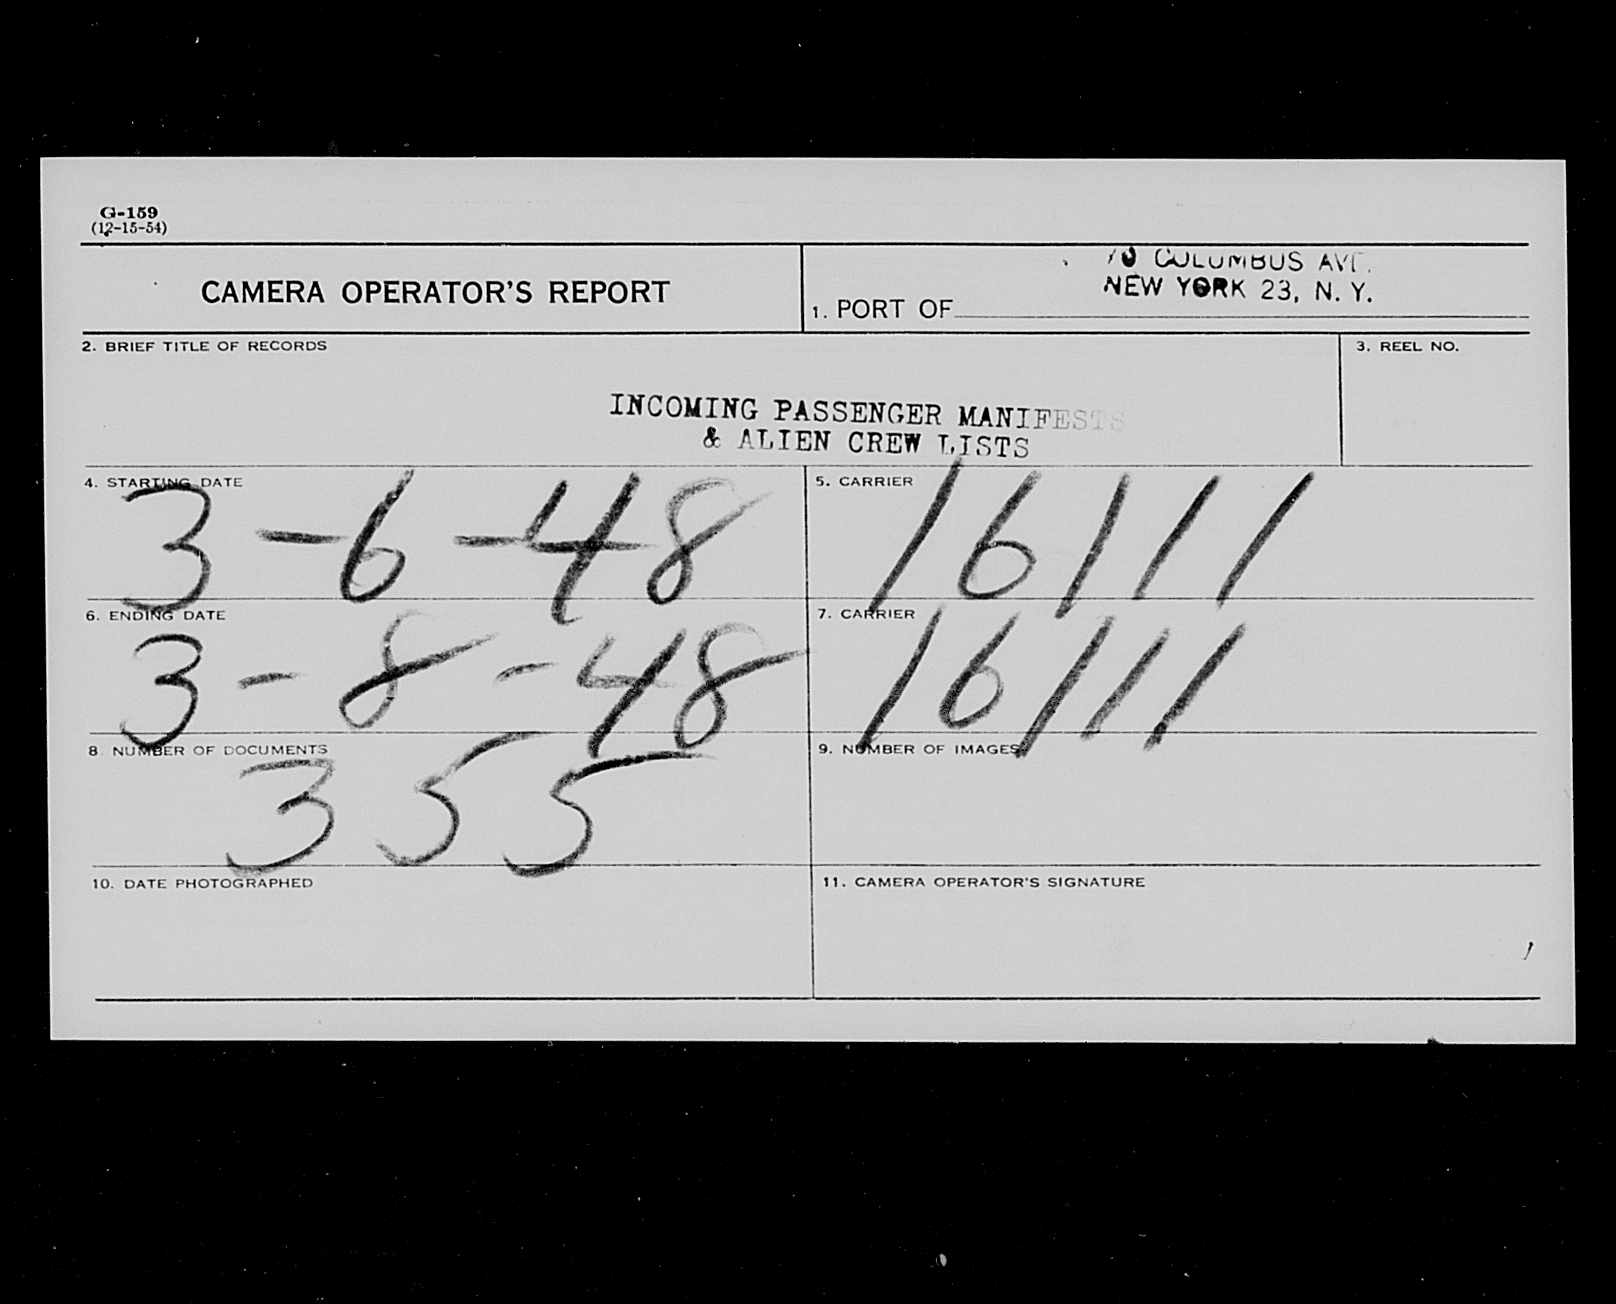 G-159
(12-15-54)
CAMERA OPERATOR'S REPORT
70 COLUMBUS AVE.
NEW YORK 23, N. Y.
1. PORT OF
2. BRIEF TITLE OF RECORDS
3. REEL NO.
INCOMING PASSENGER MANIFESTS
& ALIEN CREW LISTS
4. STARTING DATE
3-6-48
5. CARRIER
16111
6. ENDING DATE
3-8-48
7. CARRIER
16111
8. NUMBER OF DOCUMENTS
355
9. NUMBER OF IMAGES
10. DATE PHOTOGRAPHED
11. CAMERA OPERATOR'S SIGNATURE